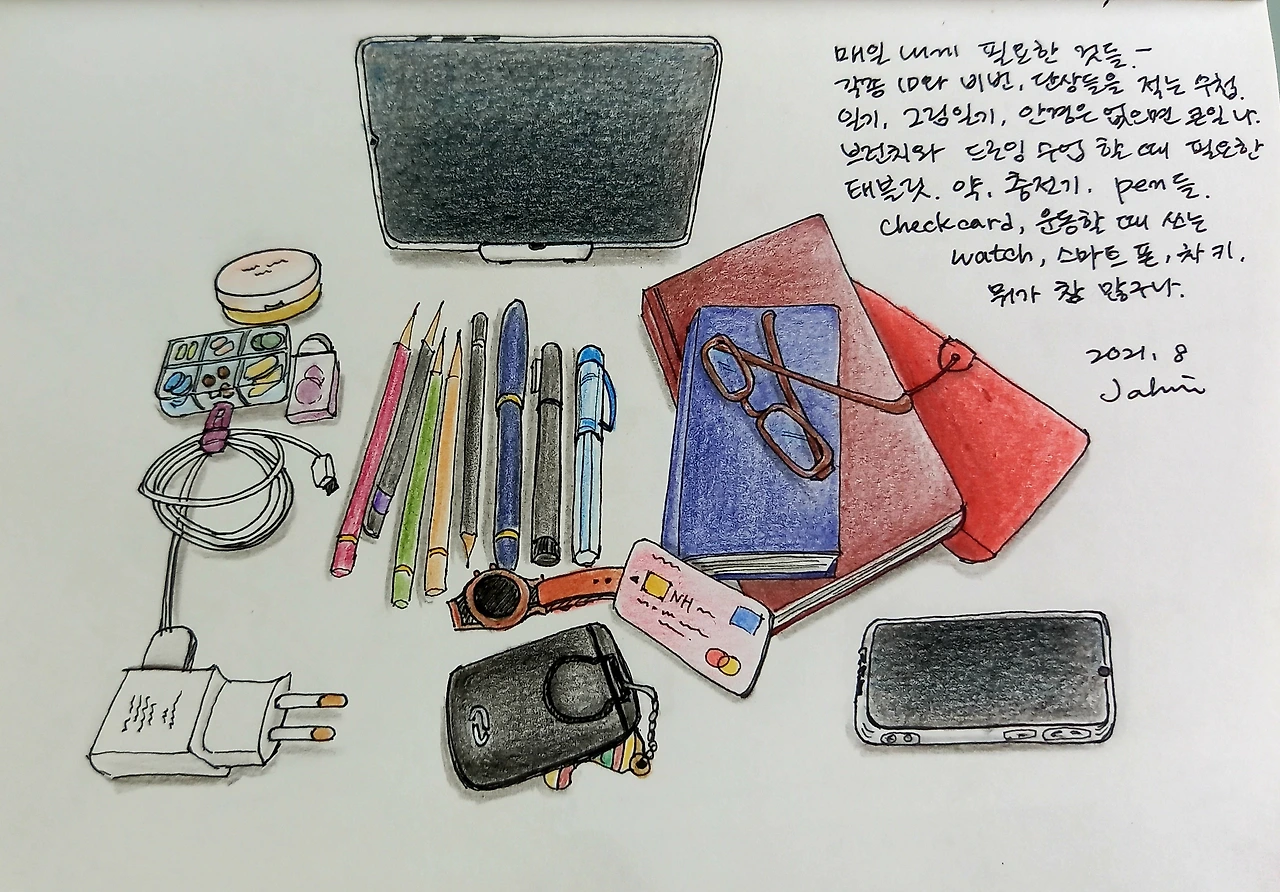 매일 내게 필요한 것들 -
각종 ID와 비번, 단상들을 적는 수첩.
일기, 그림일기, 안경은 없으면 큰일 나.
브런치와 드로잉 수업 할 때 필요한
태블릿. 약, 충전기. pen들.
checkcard, 운동할 때 쓰는
watch, 스마트폰, 차 키.
뭐가 참 많구나.
2021. 8
NH